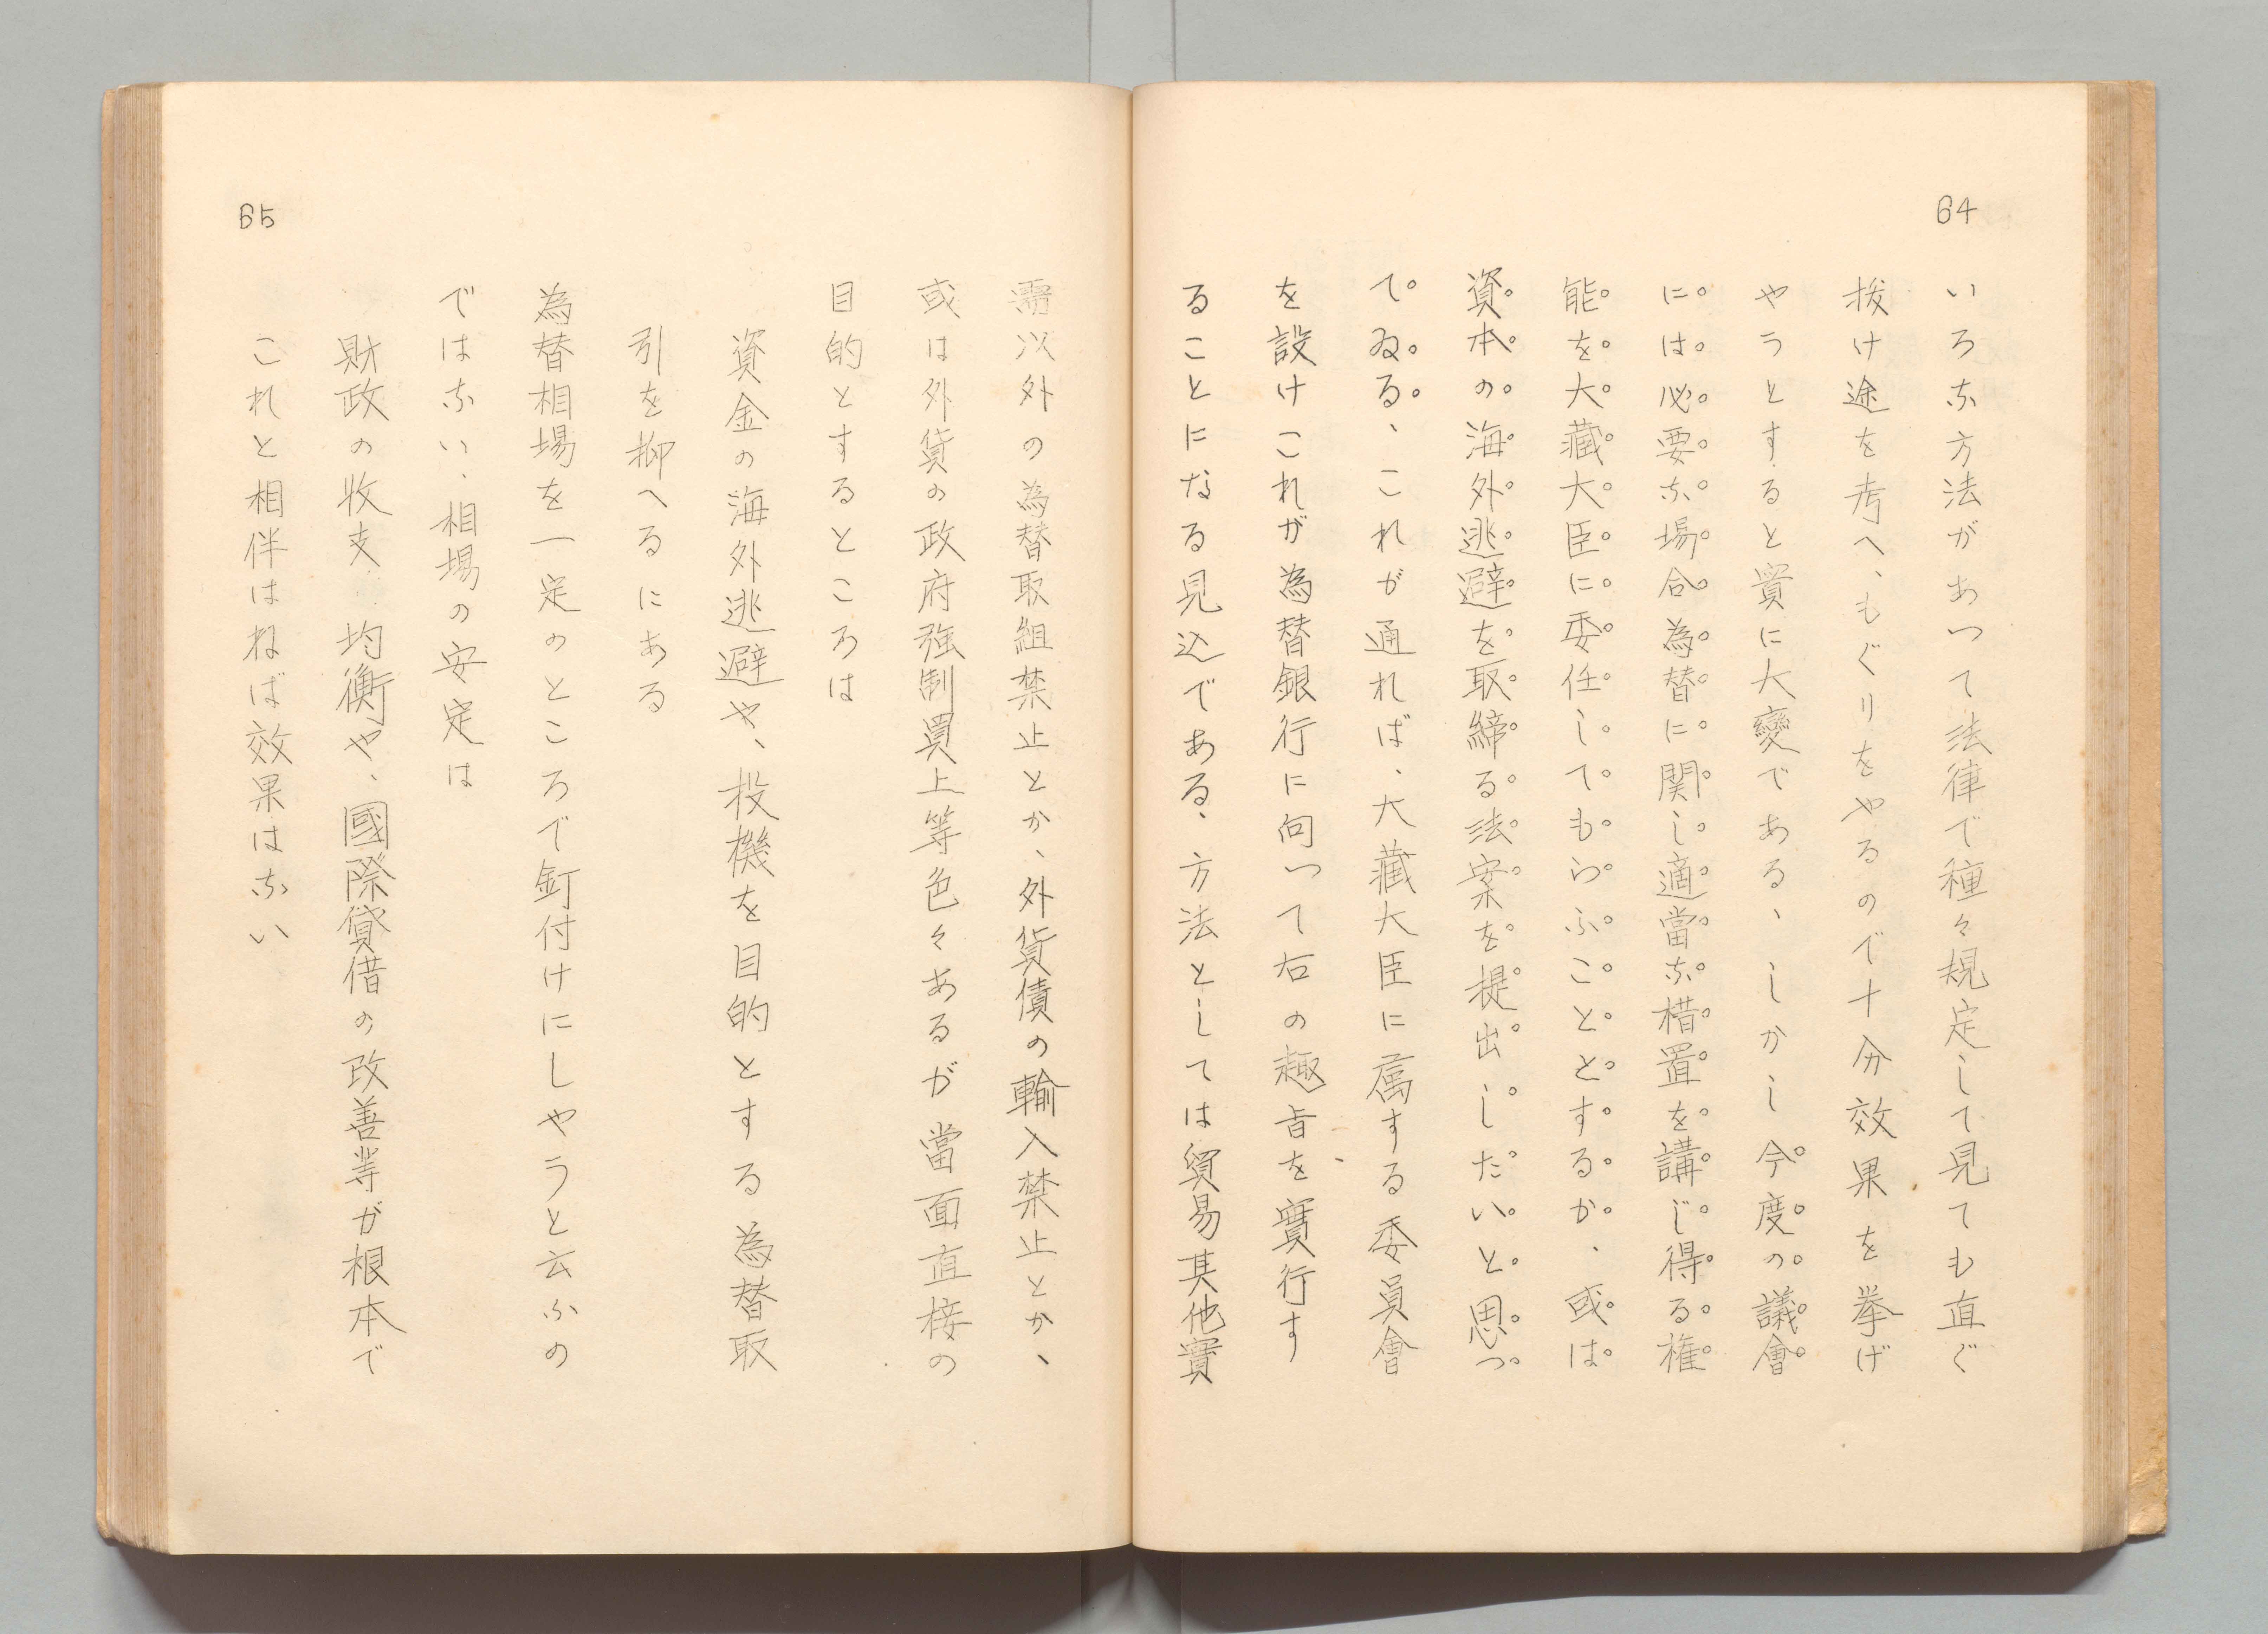 64
いろな方法があつて法律で種々規定して見ても直ぐ
抜け途を考へ、もぐりをやるので十分效果を挙げ
やうとすると實に大變である、しかし今度の議會
には必要な場合為替に関し適當な措置を講じ得る権
能を大藏大臣に委任してもらふこととするか、或は
資本の海外逃避を取締る法案を提出したいと思つ
てゐる、これが通れば、大藏大臣に属する委員會
を設けこれが為替銀行に向つて右の趣旨を實行す
ることになる見込である、方法としては貿易其他實
需以外の為替取組禁止とか、外貨債の輸入禁止とか、
或は外貨の政府強制買上等色々あるが當面直接の
目的とするところは
資金の海外逃避や、投機を目的とする為替取
引を抑へるにある
為替相場を一定のところで釘付けにしやうと云ふの
ではない、相場の安定は
財政の收支 均衡や、國際貸借の改善等が根本で
これと相伴はねば效果はない
65